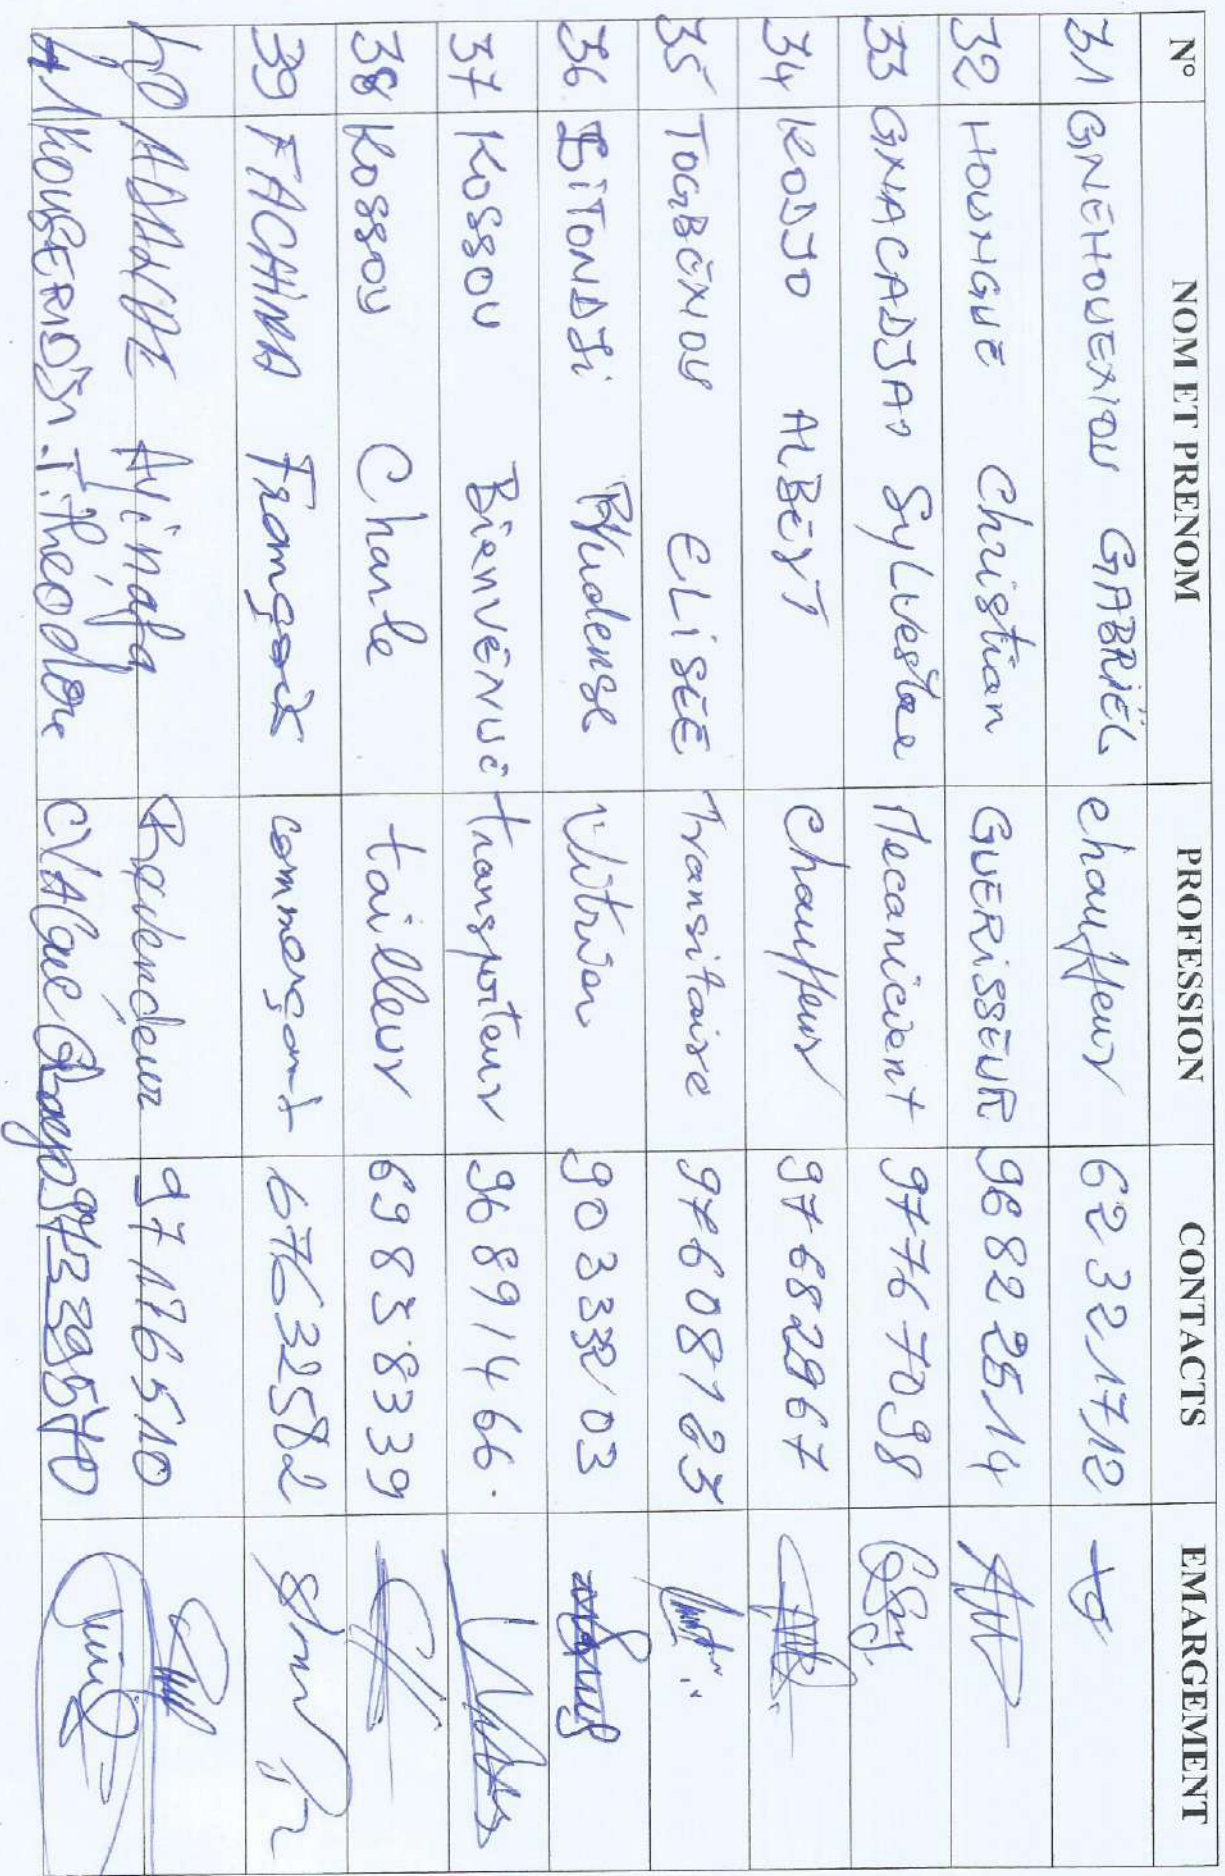 N° NOM ET PRENOM PROFESSION CONTACTS EMARGEMENT
31 GNEHOUEXIOU GABRIEL chauffeur 62321712
32 HOUNGUE Christian GUERISSEUR 96822514
33 GNACADJAO Sylvestre Mecanicient 97767098
34 KODJO ALBERT chauffeur 97682967
35 TOGBÉXIOU ELISÉE Transitaire 97608123
36 BITONDJi Prudense Vitrier
37 KOSSOU BienVENUE transporteur 96891466.
38 KOSSOU Charle tailleur 69858339
39 FACHINA François commerçant 67632582
40 Ayinafa Revendeur 97176510
41 T. Théodore